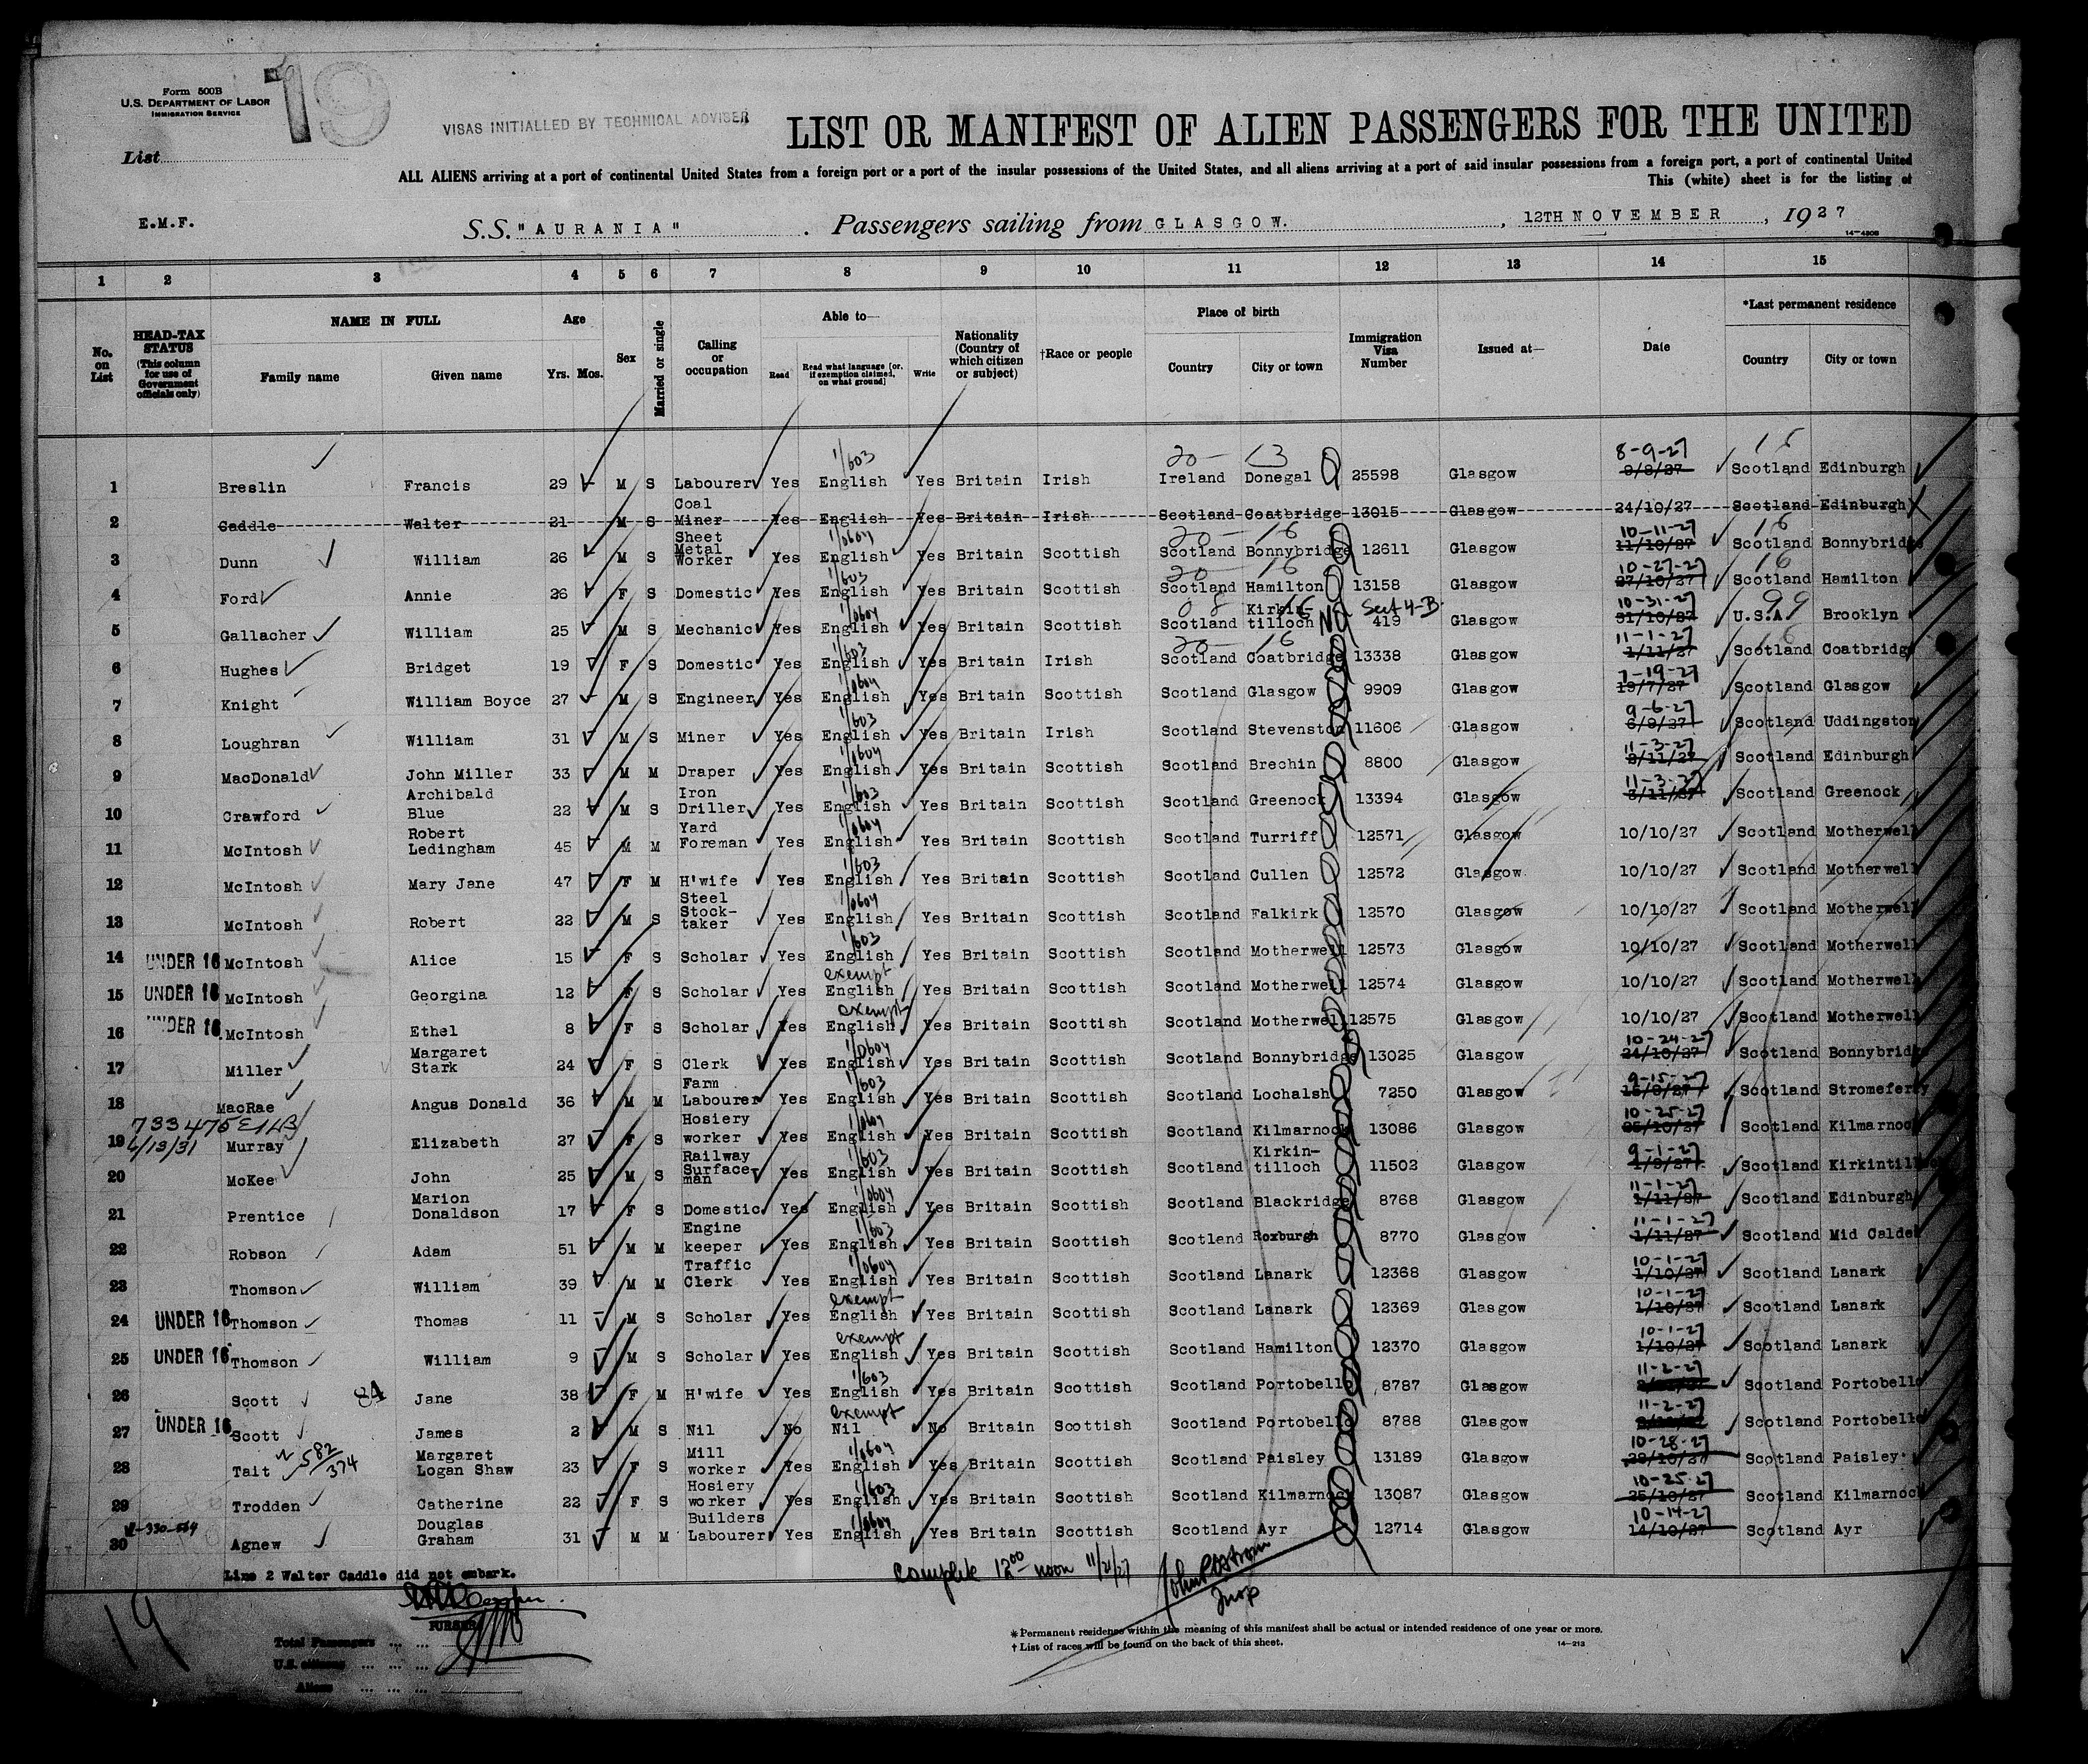 Form 500B
U.S. DEPARTMENT OF LABOR
IMMIGRATION SERVICE
19
VISAS INITIALLED BY TECHNICAL ADVISER
LIST OR MANIFEST OF ALIEN PASSENGERS FOR THE UNITED
List
ALL ALIENS arriving at a port of continental United States from a foreign port or a port of the insular possessions of the United States, and all aliens arriving at a port of said insular possessions from a foreign port, a port of continental United
This (white) sheet is for the listing of
E.M.F.
S.S. "AURANIA" . Passengers sailing from GLASGOW. , 12TH NOVEMBER , 1927
14-4808
1 2 3 4 5 6 7 8 9 10 11 12 13 14 15
No. on List
HEAD-TAX STATUS (This column for use of Government officials only)
NAME IN FULL
Family name Given name
Age
Yrs. Mos.
Sex
Married or single
Calling or occupation
Able to—
Read Read what language [or, if exemption claimed, on what ground] Write
Nationality (Country of which citizen or subject)
†Race or people
Place of birth
Country City or town
Immigration Visa Number
Issued at—
Date
*Last permanent residence
Country City or town
1 Breslin Francis 29 M S Labourer Yes 1/603 English Yes Britain Irish 20 13 Ireland Donegal 25598 Glasgow 8-9-27 9/8/27 16 Scotland Edinburgh
2 Caddle Walter 21 M S Coal Miner Yes English Yes Britain Irish Scotland Coatbridge 13015 Glasgow 24/10/27 Scotland Edinburgh
3 Dunn William 26 M S Sheet Metal Worker Yes 1/0604 English Yes Britain Scottish 20 16 Scotland Bonnybridge 12611 Glasgow 10-11-27 11/10/27 16 Scotland Bonnybridge
4 Ford Annie 26 F S Domestic Yes 1/603 English Yes Britain Scottish 20 16 Scotland Hamilton 13158 Glasgow 10-27-27 27/10/27 16 Scotland Hamilton
5 Gallacher William 25 M S Mechanic Yes 1/0604 English Yes Britain Scottish 08 16 Scotland Kirkin-tilloch NQ Sect 4-B 419 Glasgow 10-31-27 31/10/27 99 U.S.A. Brooklyn
6 Hughes Bridget 19 F S Domestic Yes 1/603 English Yes Britain Irish 20 16 Scotland Coatbridge 13338 Glasgow 11-1-27 1/11/27 16 Scotland Coatbridge
7 Knight William Boyce 27 M S Engineer Yes 1/0604 English Yes Britain Scottish Scotland Glasgow 9909 Glasgow 7-19-27 19/7/27 Scotland Glasgow
8 Loughran William 31 M S Miner Yes 1/603 English Yes Britain Irish Scotland Stevenston 11606 Glasgow 9-6-27 6/9/27 Scotland Uddingston
9 MacDonald John Miller 33 M M Draper Yes 1/0604 English Yes Britain Scottish Scotland Brechin 8800 Glasgow 11-3-27 3/11/27 Scotland Edinburgh
10 Crawford Archibald Blue 22 M S Iron Driller Yes 1/603 English Yes Britain Scottish Scotland Greenock 13394 Glasgow 11-3-27 3/11/27 Scotland Greenock
11 McIntosh Robert Ledingham 45 M M Yard Foreman Yes 1/0604 English Yes Britain Scottish Scotland Turriff 12571 Glasgow 10/10/27 Scotland Motherwell
12 McIntosh Mary Jane 47 F M H'wife Yes 1/603 English Yes Britain Scottish Scotland Cullen 12572 Glasgow 10/10/27 Scotland Motherwell
13 McIntosh Robert 22 M S Steel Stock-taker Yes 1/0604 English Yes Britain Scottish Scotland Falkirk 12570 Glasgow 10/10/27 Scotland Motherwell
14 UNDER 16 McIntosh Alice 15 F S Scholar Yes 1/603 English Yes Britain Scottish Scotland Motherwell 12573 Glasgow 10/10/27 Scotland Motherwell
15 UNDER 16 McIntosh Georgina 12 F S Scholar Yes exempt English Yes Britain Scottish Scotland Motherwell 12574 Glasgow 10/10/27 Scotland Motherwell
16 UNDER 16 McIntosh Ethel 8 F S Scholar Yes exempt English Yes Britain Scottish Scotland Motherwell 12575 Glasgow 10/10/27 Scotland Motherwell
17 Miller Margaret Stark 24 F S Clerk Yes 1/0604 English Yes Britain Scottish Scotland Bonnybridge 13025 Glasgow 10-24-27 24/10/27 Scotland Bonnybridge
18 MacRae Angus Donald 36 M M Farm Labourer Yes 1/603 English Yes Britain Scottish Scotland Lochalsh 7250 Glasgow 9-15-27 15/9/27 Scotland Stromeferry
733475
6/13/31
19 Murray Elizabeth 27 F S Hosiery worker Yes 1/0604 English Yes Britain Scottish Scotland Kilmarnock 13086 Glasgow 10-25-27 25/10/27 Scotland Kilmarnock
20 McKee John 25 M S Railway Surface-man Yes 1/603 English Yes Britain Scottish Scotland Kirkin-tilloch 11502 Glasgow 9-1-27 1/9/27 Scotland Kirkintilloch
21 Prentice Marion Donaldson 17 F S Domestic Yes 1/0604 English Yes Britain Scottish Scotland Blackridge 8768 Glasgow 11-1-27 1/11/27 Scotland Edinburgh
22 Robson Adam 51 M M Engine keeper Yes 1/603 English Yes Britain Scottish Scotland Roxburgh 8770 Glasgow 11-1-27 1/11/27 Scotland Mid Calder
23 Thomson William 39 M M Traffic Clerk Yes 1/0604 English Yes Britain Scottish Scotland Lanark 12368 Glasgow 10-1-27 1/10/27 Scotland Lanark
24 UNDER 16 Thomson Thomas 11 M S Scholar Yes exempt English Yes Britain Scottish Scotland Lanark 12369 Glasgow 10-1-27 1/10/27 Scotland Lanark
25 UNDER 16 Thomson William 9 M S Scholar Yes exempt English Yes Britain Scottish Scotland Hamilton 12370 Glasgow 10-1-27 1/10/27 Scotland Lanark
26 Scott Jane 38 F M H'wife Yes 1/603 English Yes Britain Scottish Scotland Portobello 8787 Glasgow 11-2-27 Scotland Portobello
27 UNDER 16 Scott James 2 M S Nil No exempt Nil No Britain Scottish Scotland Portobello 8788 Glasgow 11-2-27 Scotland Portobello
28 Tait 582/374 Margaret Logan Shaw 23 F S Mill worker Yes 1/0604 English Yes Britain Scottish Scotland Paisley 13189 Glasgow 10-28-27 28/10/27 Scotland Paisley
29 Trodden Catherine 22 F S Hosiery worker Yes 1/603 English Yes Britain Scottish Scotland Kilmarnock 13087 Glasgow 10-25-27 25/10/27 Scotland Kilmarnock
30 Agnew Douglas Graham 31 M M Builders Labourer Yes 1/0604 English Yes Britain Scottish Scotland Ayr 12714 Glasgow 10-14-27 14/10/27 Scotland Ayr
Line 2 Walter Caddle did not embark.
Complete 12 00 noon 11/21/27
Insp
PURSER
19
Total Passengers
U.S. citizens
Aliens
* Permanent residence within the meaning of this manifest shall be actual or intended residence of one year or more.
† List of races will be found on the back of this sheet.
14-213